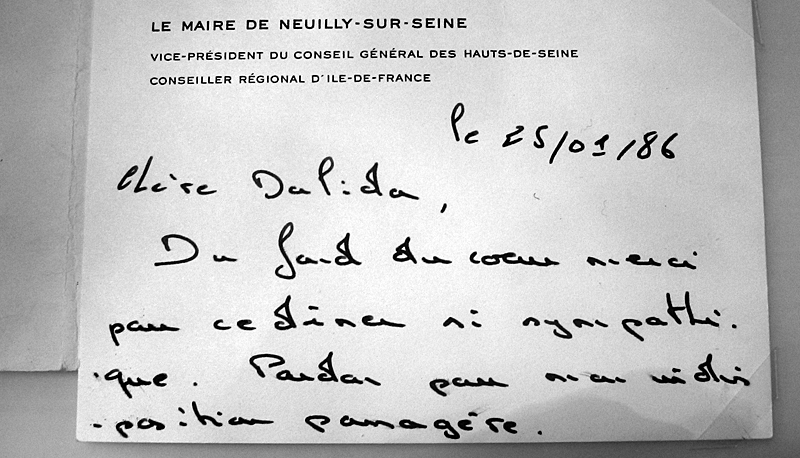 LE MAIRE DE NEUILLY-SUR-SEINE
VICE-PRÉSIDENT DU CONSEIL GÉNÉRAL DES HAUTS-DE-SEINE
CONSEILLER RÉGIONAL D'ILE-DE-FRANCE
le 25/01/86
Chère Dalida,
Du fond du coeur merci
pour ce diner si sympathi.
.que. Pardon pour mon indis
.position passagère.